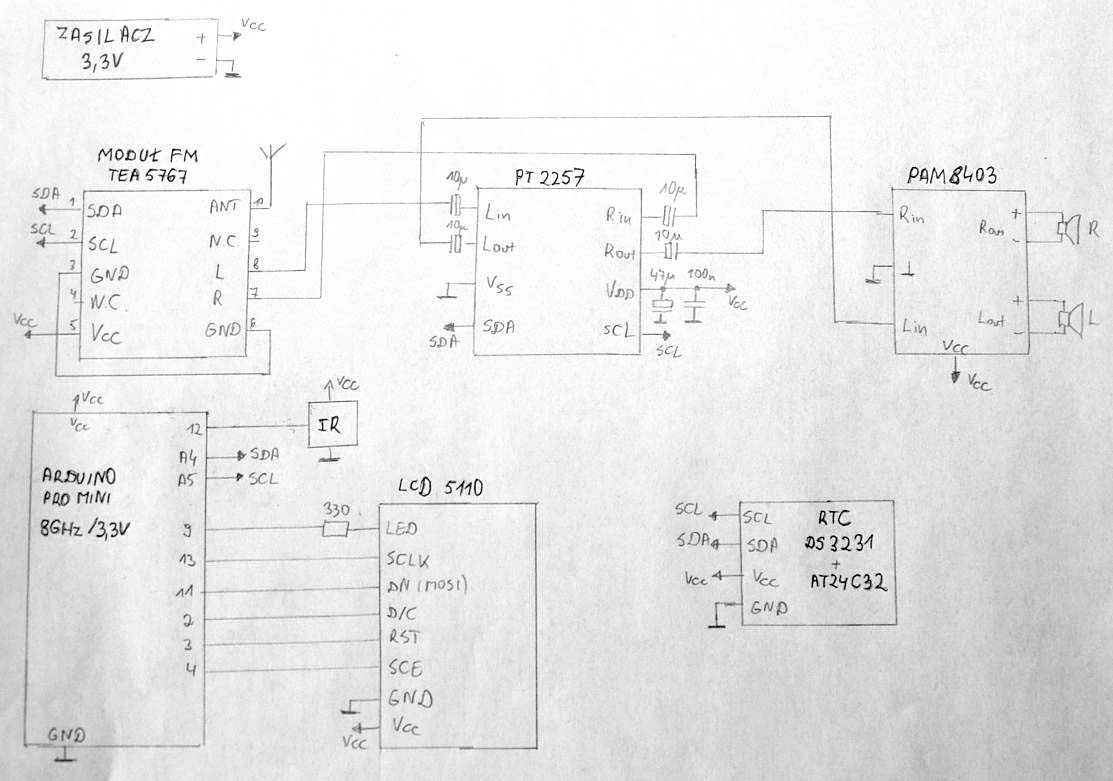 ZASILACZ +
3,3V −
Vcc
MODUŁ FM
TEA5767
SDA 1 SDA
SCL 2 SCL
3 GND
4 N.C.
Vcc 5 Vcc
ANT 10
N.C. 9
L 8
R 7
GND 6
PT2257
10µ Lin
10µ Lout
Vss
SDA SDA
Rin 10µ
Rout 10µ
47µ 100n
VDD Vcc
SCL SCL
PAM8403
Rin
⊥
Lin
+
Rout R
-
+
Lout L
-
Vcc
Vcc
Vcc
Vcc
ARDUINO
PRO MINI
8GHz/3,3V
12
A4 SDA
A5 SCL
9
13
11
2
3
4
GND
Vcc
IR
330
LCD 5110
LED
SCLK
DN(MOSI)
D/C
RST
SCE
GND
Vcc Vcc
SCL SCL
SDA SDA
Vcc Vcc
GND
RTC
DS3231
+
AT24C32